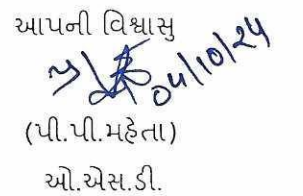 આપની વિશ્વાસુ
04/10/24
(પી.પી.મહેતા)
ઓ.એસ.ડી.